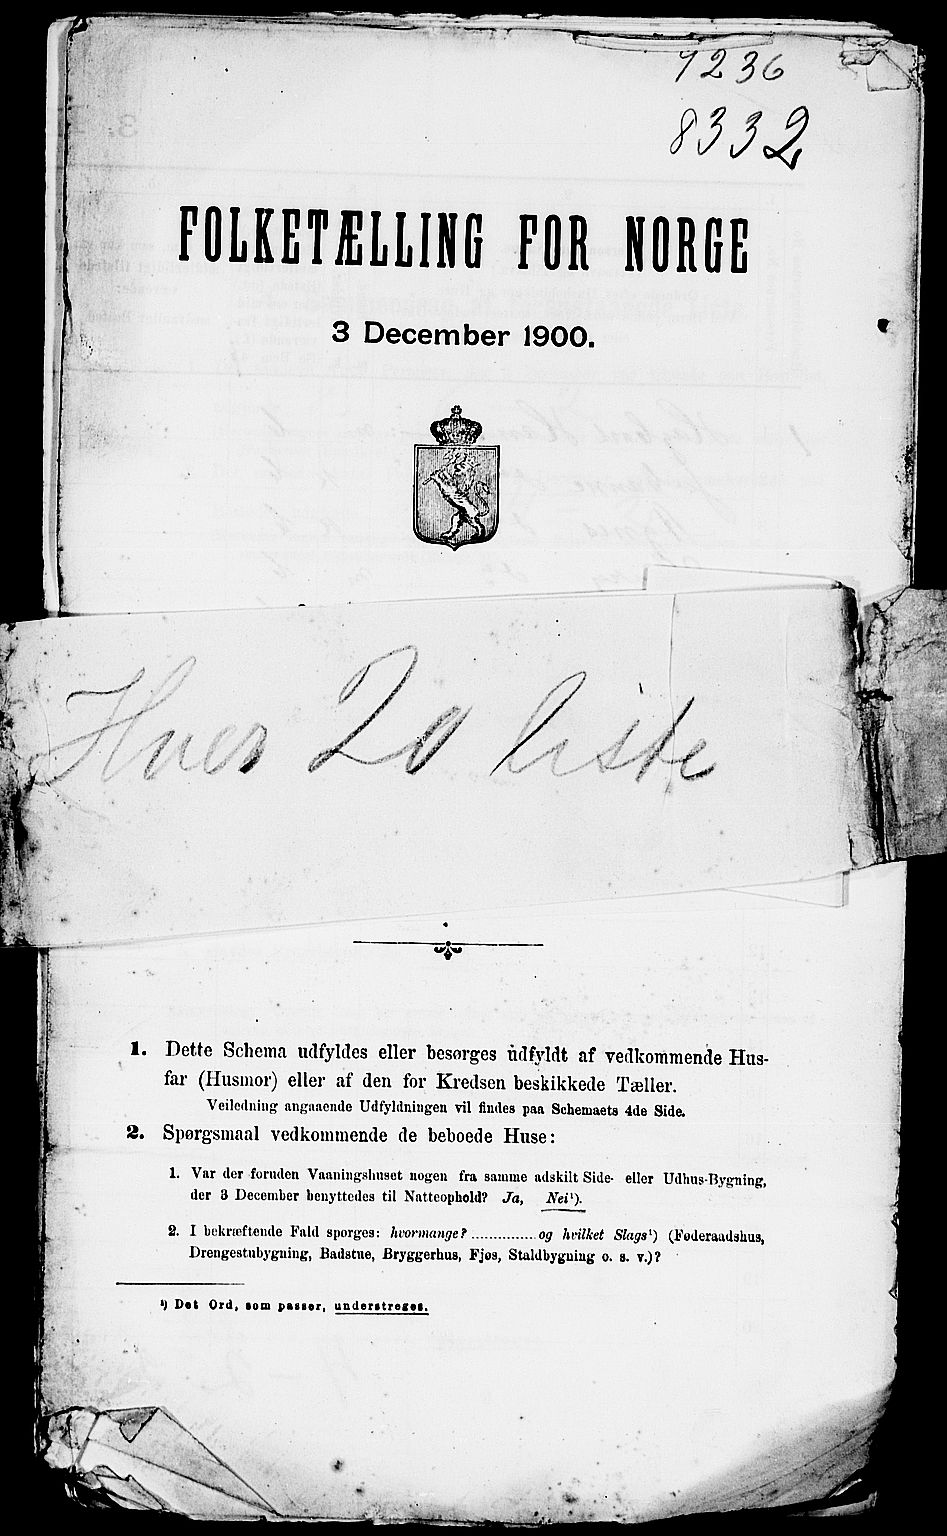 7236
8332
FOLKETÆLLING FOR NORGE
3 December 1900.
Hver 20 liste
1. Dette Schema udfyldes eller besørges udfyldt af vedkommende Hus-
far (Husmor) eller af den for Kredsen beskikkede Tæller.
Veiledning angaaende Udfyldningen vil findes paa Schemaets 4de Side.
2. Spørgsmaal vedkommende de beboede Huse:
1. Var der foruden Vaaningshuset nogen fra samme adskilt Side- eller Udhus-Bygning,
der 3 December benyttedes til Natteophold? Ja, Nei¹).
2. I bekræftende Fald spørges: hvormange? ............... og hvilket Slags¹) (Føderaadshus,
Drengestubygning, Badstue, Bryggerhus, Fjøs, Staldbygning o. s. v.)?
¹) Det Ord, som passer, understreges.